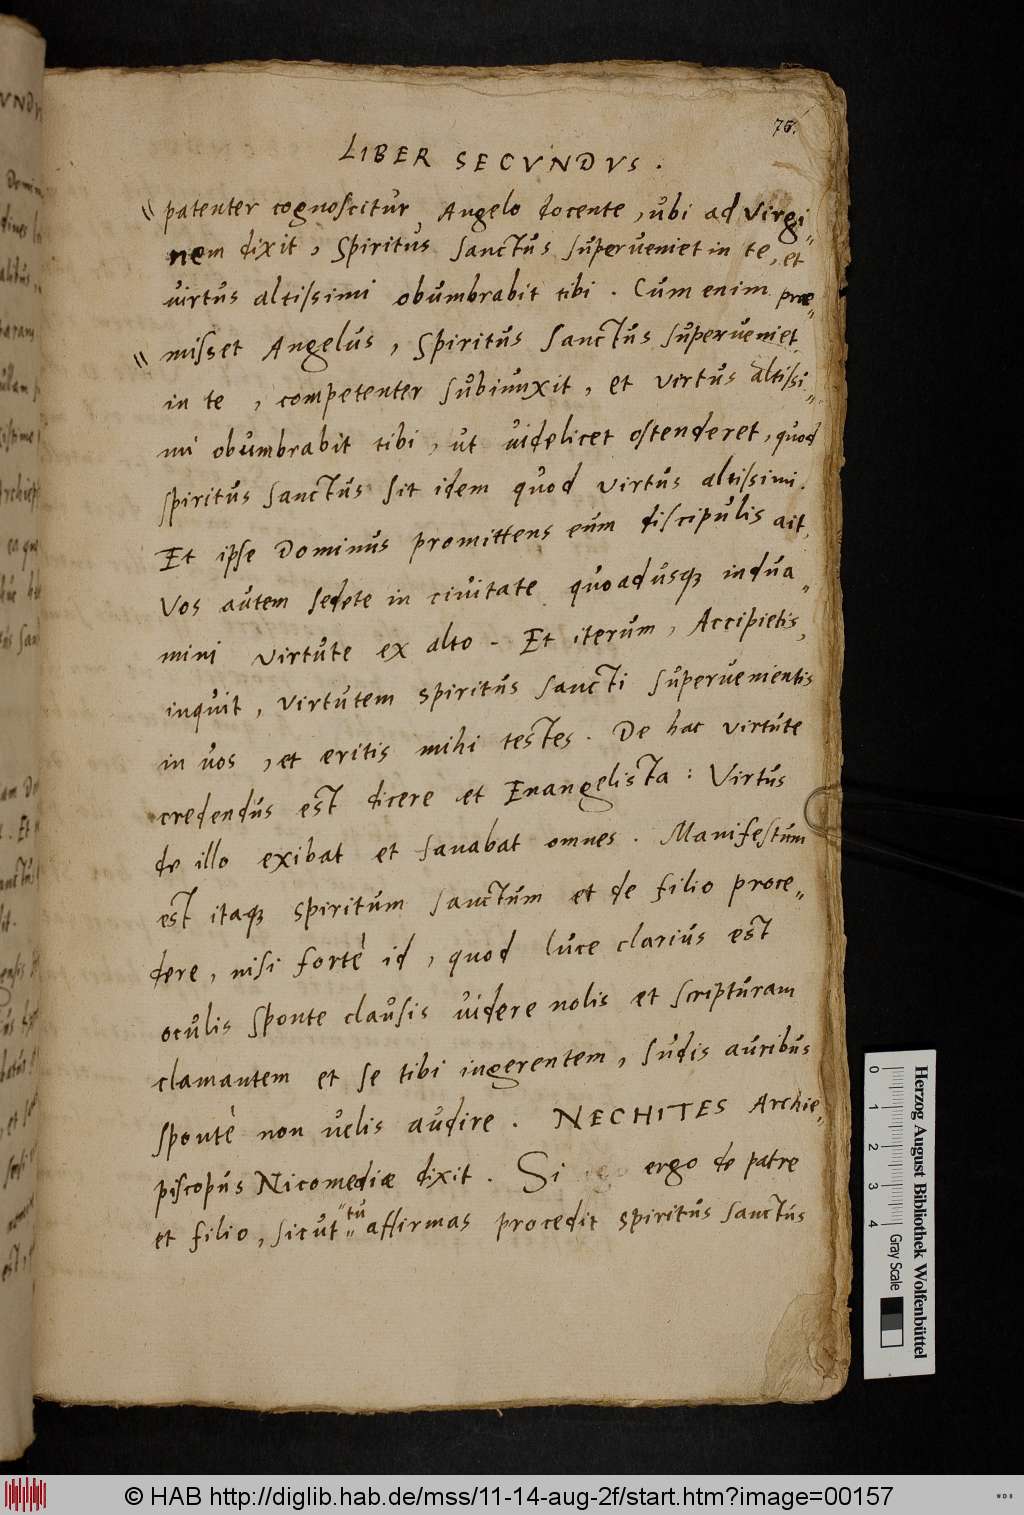 76.
LIBER SECVNDVS.
patenter cognoscitur Angelo docente, ubi ad Virgi„
nem dixit, Spiritus Sanctus superueniet in te, et
virtus altissimi obumbrabit tibi. Cum enim præ„
misset Angelus, Spiritus Sanctus superueniet
in te, competenter subiunxit, et virtus altissi„
mi obumbrabit tibi, ut uidelicet ostenderet, quod
spiritus sanctus sit idem quod virtus altissimi.
Et ipse Dominus promittens eum discipulis ait,
Vos autem sedete in ciuitate quoadusqꝫ indua„
mini virtute ex alto. Et iterum, Accipietis,
inquit, virtutem spiritus sancti superuenientis
in uos, et eritis mihi testes. De hac virtute
credendus est dicere et Euangelista: Virtus
de illo exibat et sanabat omnes. Manifestum
est itaqꝫ spiritum sanctum et de filio proce„
dere, nisi fortè id, quod luce clarius est
oculis sponte clausis uidere nolis et scripturam
clamantem et se tibi ingerentem, sudis auribus
spontè non uelis audire. NECHITES Archie„
piscopus Nicomediæ dixit. Si ergo de patre
et filio, sicut tu affirmas procedit spiritus sanctus
Herzog August Bibliothek Wolfenbüttel
0 1 2 3 4 Gray Scale
© HAB http://diglib.hab.de/mss/11-14-aug-2f/start.htm?image=00157